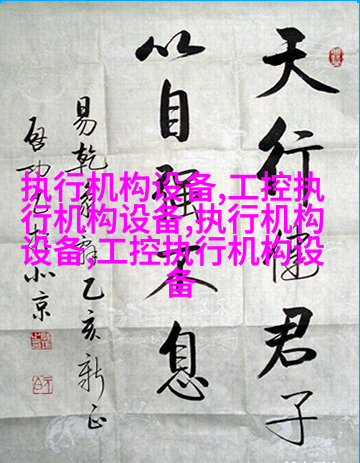 天行健君子
以自强不息
易乾象辞乙亥新正
启功书于北京
执行机构设备,工控执
行机构设备,执行机构
设备,工控执行机构设
备